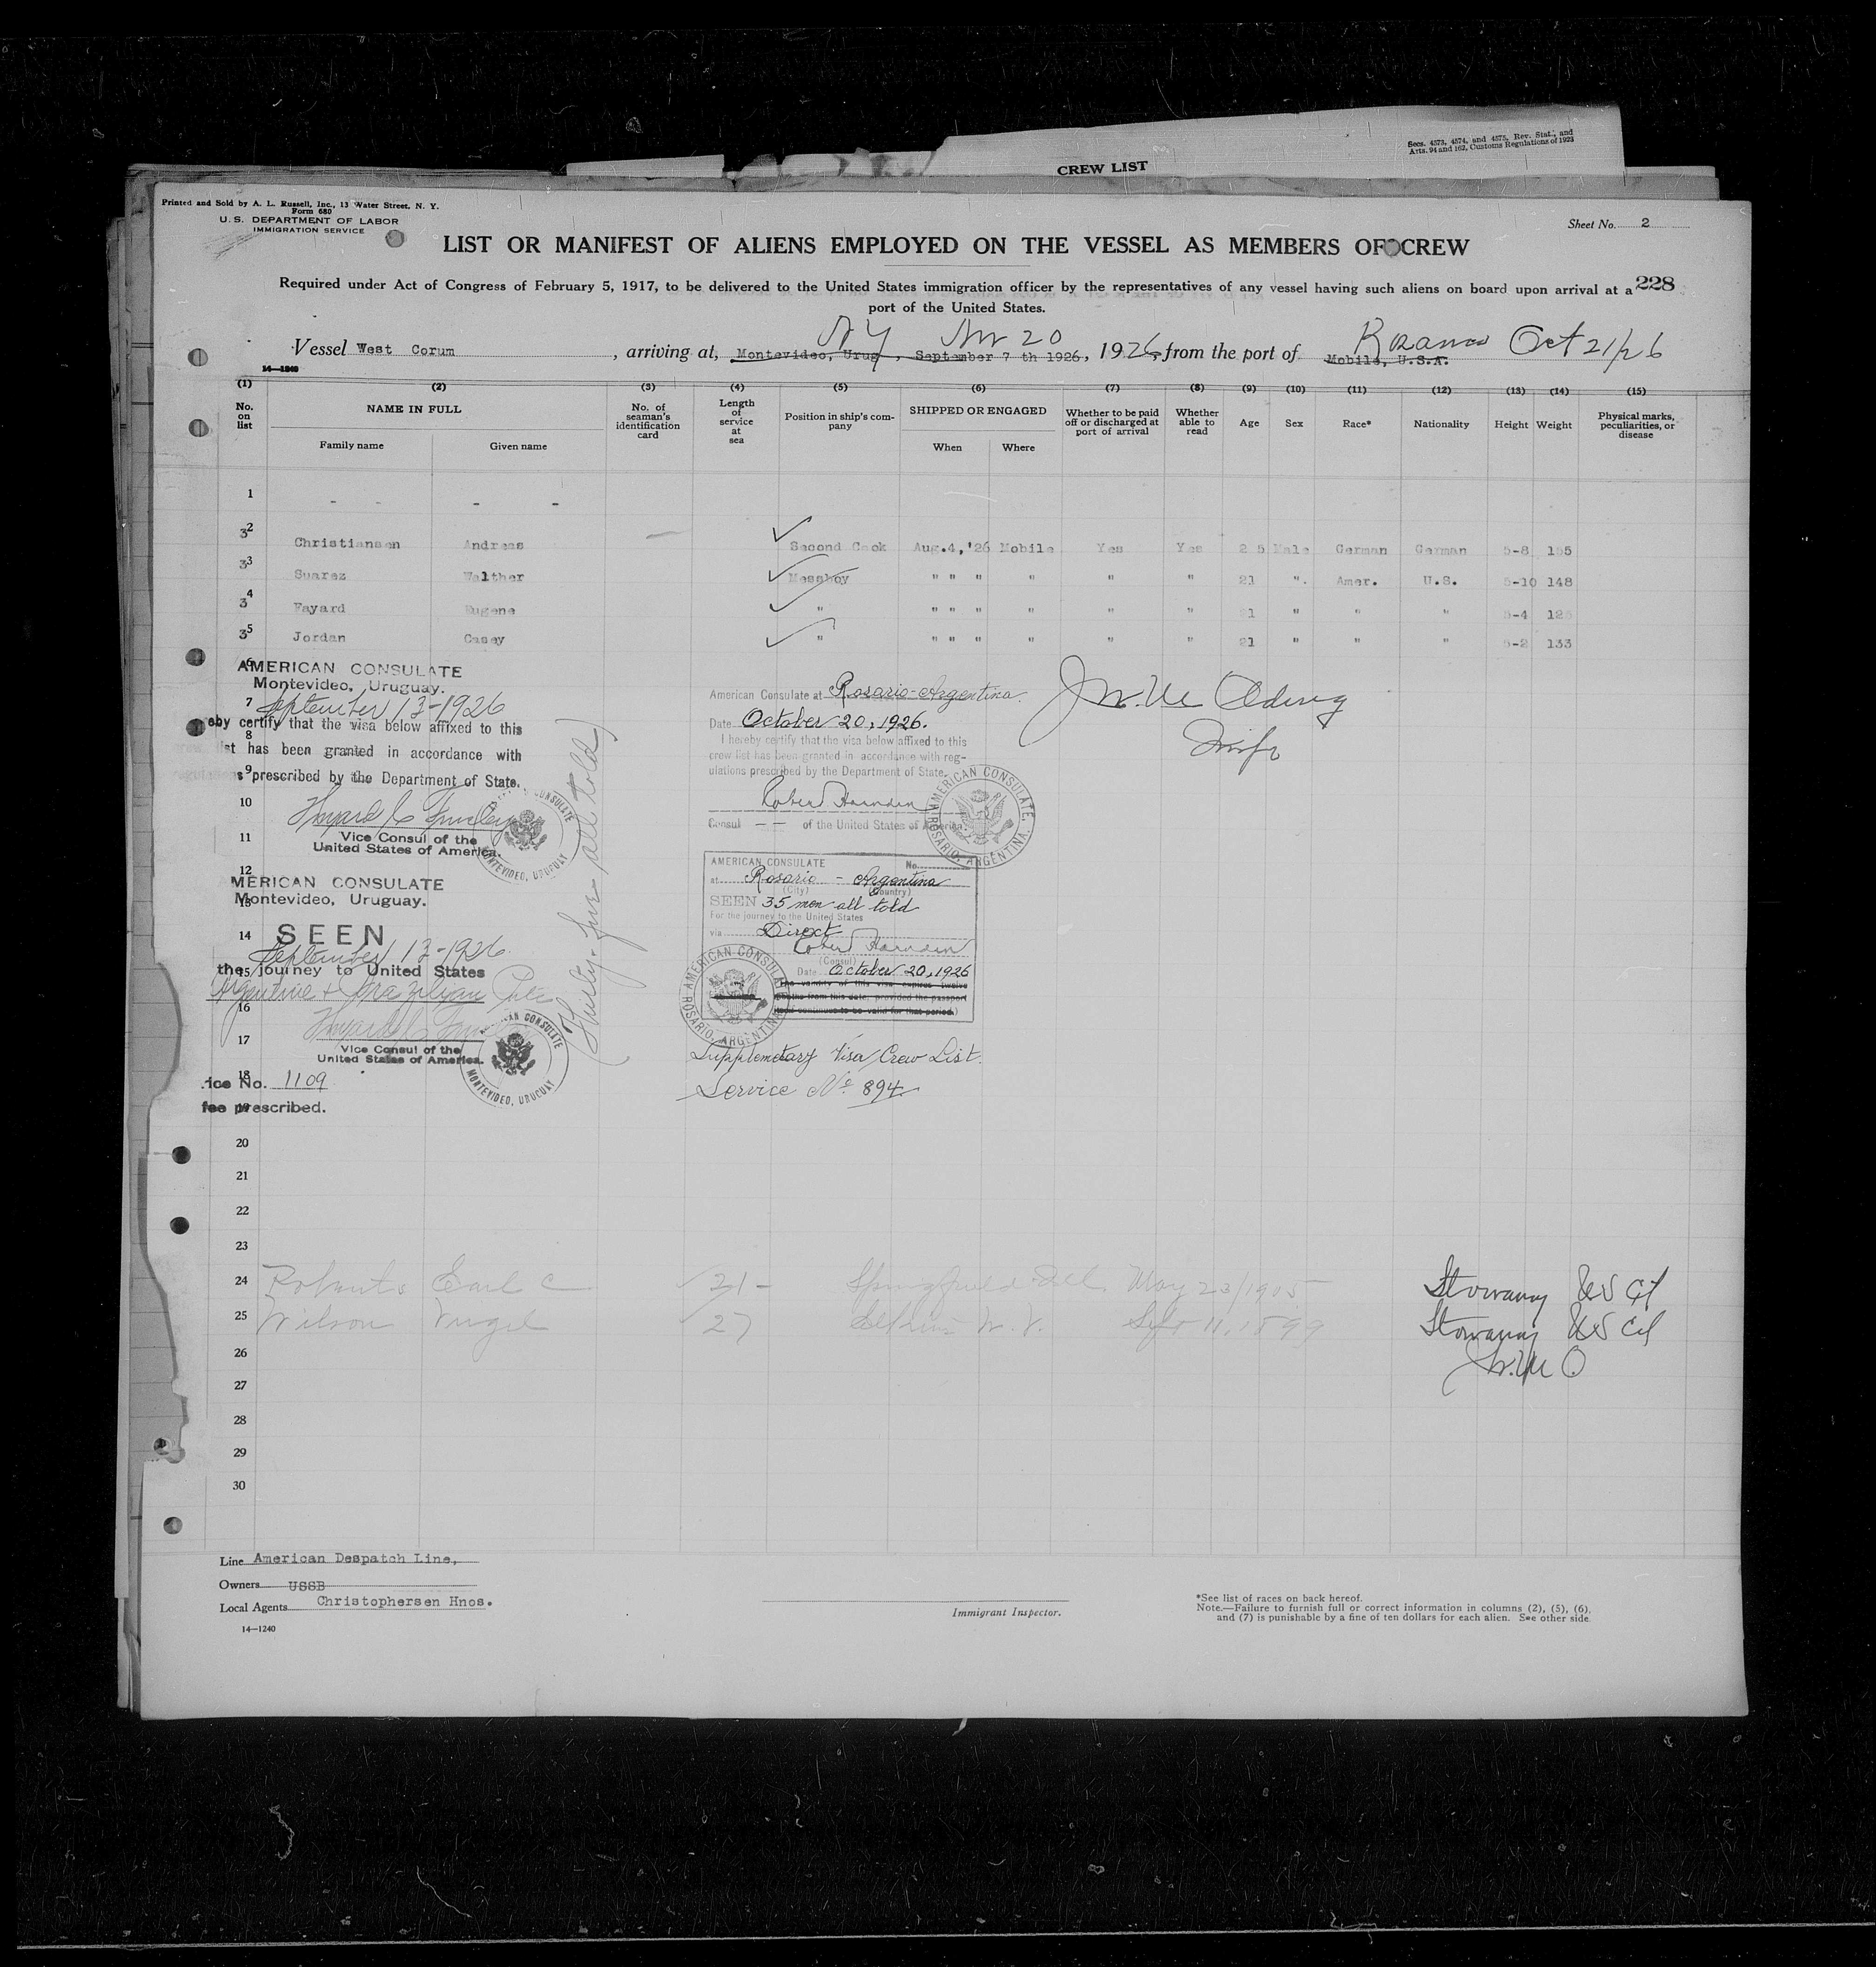 Secs. 4573, 4574, and 4575, Rev. Stat., and
Arts. 94 and 162, Customs Regulations of 1923
CREW LIST
Printed and Sold by A. L. Russell, Inc., 13 Water Street, N. Y.
Form 680
U. S. DEPARTMENT OF LABOR
IMMIGRATION SERVICE
Sheet No. 2
LIST OR MANIFEST OF ALIENS EMPLOYED ON THE VESSEL AS MEMBERS OF CREW
Required under Act of Congress of February 5, 1917, to be delivered to the United States immigration officer by the representatives of any vessel having such aliens on board upon arrival at a
port of the United States.
228
N Y Nov 20 Rosario Oct 21/26
Vessel West Corum, arriving at, Montevideo, Urug, September 7 th 1926, 1926, from the port of Mobile, U.S.A.
14—1240
(1) (2) (3) (4) (5) (6) (7) (8) (9) (10) (11) (12) (13) (14) (15)
No. on list NAME IN FULL No. of seaman's identification card Length of service at sea Position in ship's company SHIPPED OR ENGAGED Whether to be paid off or discharged at port of arrival Whether able to read Age Sex Race* Nationality Height Weight Physical marks, peculiarities, or disease
Family name Given name When Where
1 - - - -
3 2 Christiansen Andreas Second Cook Aug.4,'26 Mobile Yes Yes 25 Male German German 5-8 155
3 3 Suarez Walther Messboy " " " " " " 21 " Amer. U.S. 5-10 148
3 4 Fayard Eugene " " " " " " " 21 " " " 5-4 125
3 5 Jordan Casey " " " " " " " 21 " " " 5-2 133
6
AMERICAN CONSULATE
Montevideo, Uruguay.
7 September 13-1926
eby certify that the visa below affixed to this
8
st has been granted in accordance with
9
s prescribed by the Department of State.
10
11
Vice Consul of the
United States of America.
AMERICAN CONSULATE MONTEVIDEO, URUGUAY
12
MERICAN CONSULATE
13
Montevideo, Uruguay.
14 SEEN
September 13-1926.
15
the journey to United States
Argentine & Brazilian Ports
16
17
Vice Consul of the
United States of America.
AMERICAN CONSULATE MONTEVIDEO, URUGUAY
18
ice No. 1109
19
fee prescribed.
(Thirty-five all told)
American Consulate at Rosario-Argentina.
Date October 20, 1926.
I hereby certify that the visa below affixed to this
crew list has been granted in accordance with reg-
ulations prescribed by the Department of State.
Robert Harnden
Consul — — of the United States of America.
AMERICAN CONSULATE. ROSARIO, ARGENTINA.
AMERICAN CONSULATE No.
at Rosario - Argentina
(City) (Country)
SEEN 35 men all told
For the journey to the United States
via Direct
Robert Harnden
(Consul)
Date October 20, 1926
The validity of this visa expires twelve
months from this date, provided the passport
itself continues to be valid for that period.)
AMERICAN CONSULATE ROSARIO, ARGENTINA
Supplementary Visa Crew List.
Service No. 894
20
21
22
23
24 Roberts Earl C 21- Springfield Ill May 23/1905 Stowaway US Cit
25 Wilson Virgil 27 Sept 11, 1899 Stowaway US Cit
26 J.W.McO
27
28
29
30
Line American Despatch Line,
Owners USSB
Local Agents Christophersen Hnos.
14—1240
Immigrant Inspector.
*See list of races on back hereof.
Note.—Failure to furnish full or correct information in columns (2), (5), (6),
and (7) is punishable by a fine of ten dollars for each alien. See other side